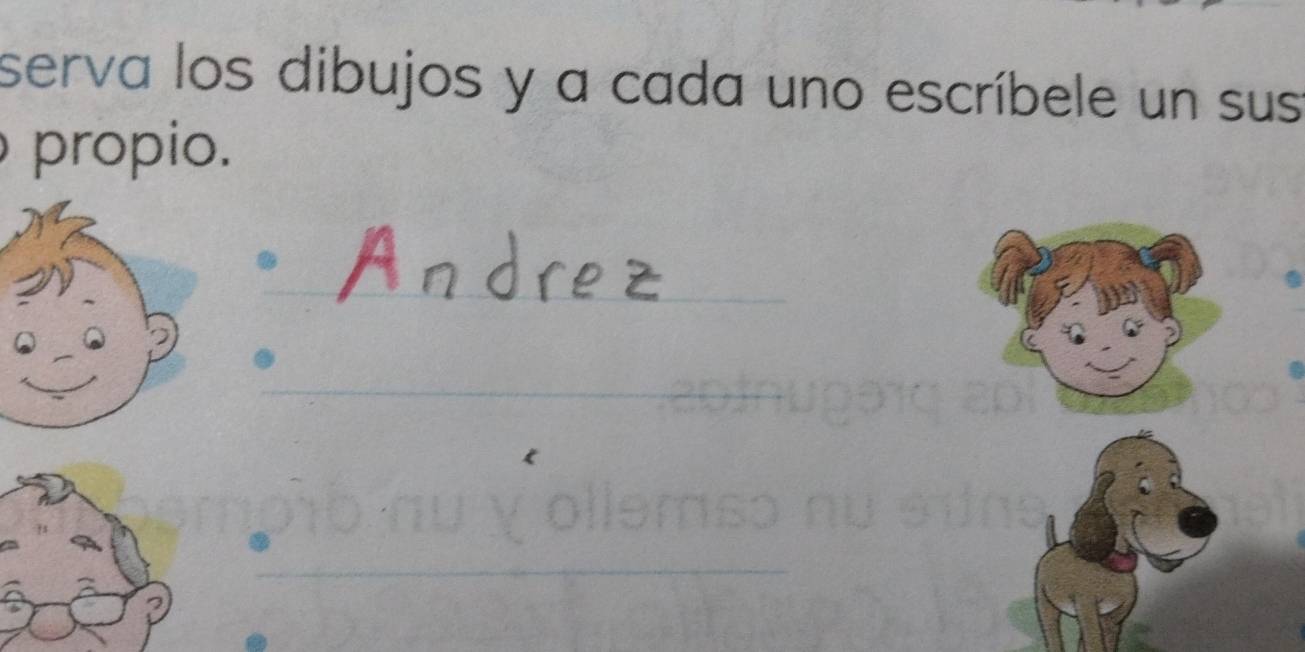 serva los dibujos y a cada uno escríbele un sus
o propio.
Andrez